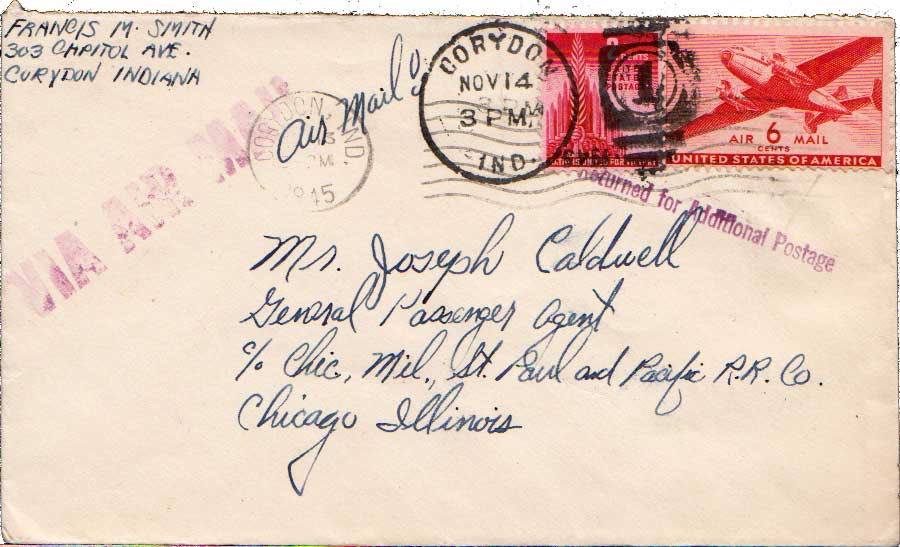 FRANCIS M. SMITH
303 CAPITOL AVE.
CORYDON INDIANA
VIA AIR MAIL
Air Mail
CORYDON IND
PM
1945
CORYDON
NOV 14
3 PM
IND.
CENTS
UNITED STATES POSTAGE
NATIONS UNITED FOR VICTORY
1
AIR 6 MAIL
CENTS
UNITED STATES OF AMERICA
Returned for Additional Postage
Mr. Joseph Caldwell
General Passenger Agent
c/o Chic, Mil., St. Paul and Pacific R.R. Co.
Chicago Illinois